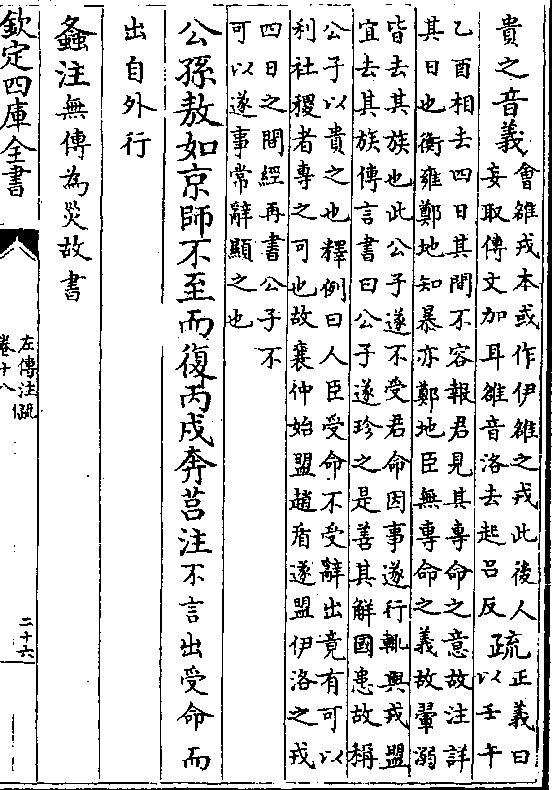 貴之音義會雒戎本或作伊雒之戎此後人
妄取傳文加耳雒音洛去起呂反疏正義曰
以壬午
乙酉相去四日其間不容報君見其專命之意故注詳
其日也衡雍鄭地知暴亦鄭地臣無專命之義故翬溺
皆去其族也此公子遂不受君命因事遂行輒與戎盟
宜去其族傳言書曰公子遂珍之是善其解國患故稱
公子以貴之也釋例曰人臣受命不受辭出竟有可以
利社稷者專之可也故襄仲始盟趙盾遂盟伊洛之戎
四日之間經再書公子不
可以遂事常辭顯之也
公孫敖如京師不至而復丙戌奔莒注不言出受命而
出自外行
螽注無傳為災故書
欽定四庫全書
左傳注疏
卷十八
二十六